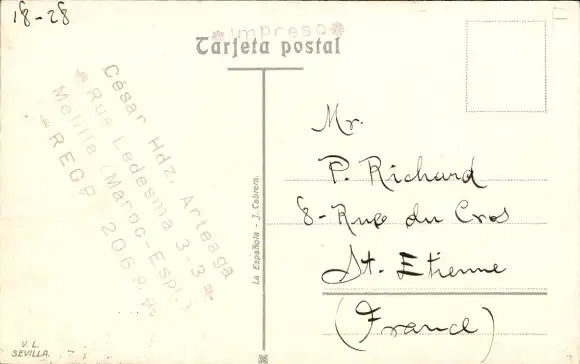 18-28
*impreso*
Tarjeta postal
César Hdz. Arteaga
* Rue Ledesma 3-3 *
Melilla (Maroc-Espl.)
RECP 206
La Española - J. Cabrera.
Mr.
P. Richard
8-Rue du Cros
St. Etienne
(France)
V. L.
SEVILLA.